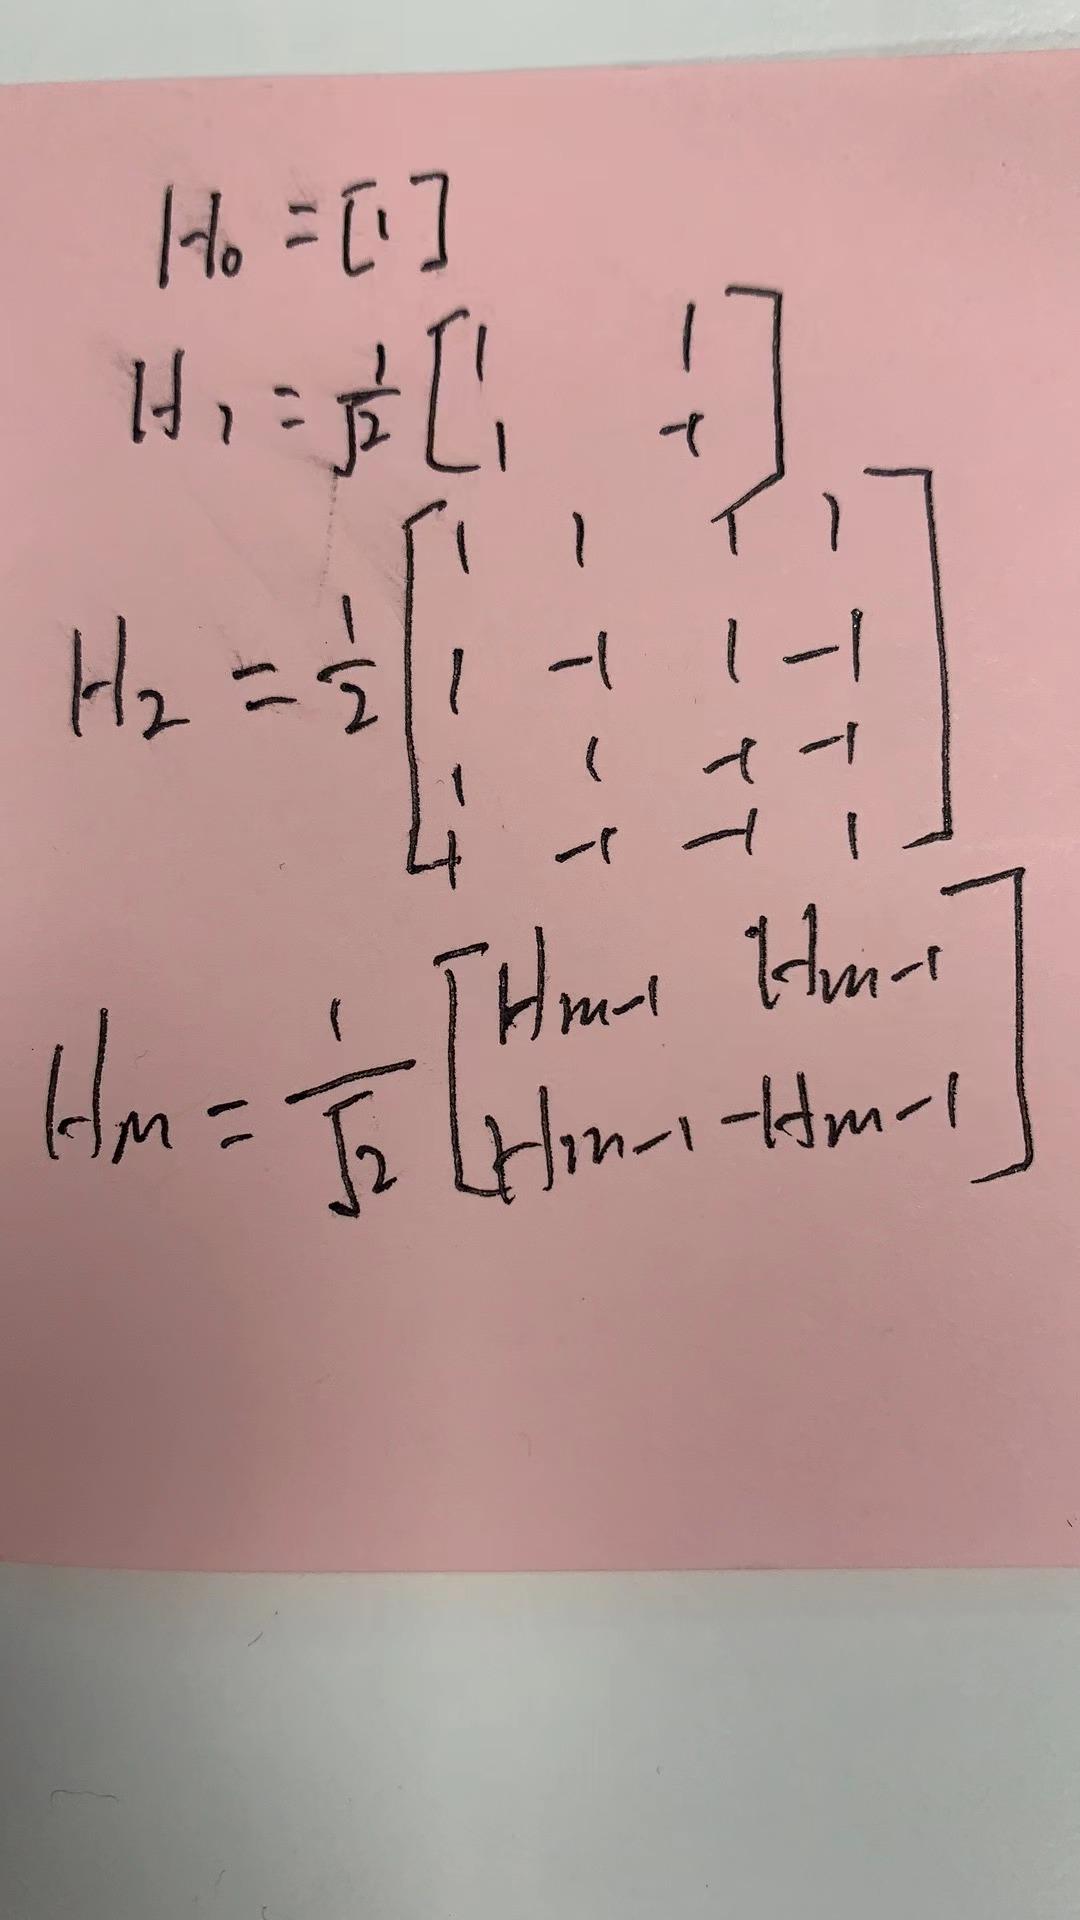 H₀ = [1]
H₁ = 1/√2 [1 1
1 -1]
H₂ = 1/2 [1 1 1 1
1 -1 1 -1
1 1 -1 -1
1 -1 -1 1]
Hₘ = 1/√2 [Hₘ₋₁ Hₘ₋₁
Hₘ₋₁ -Hₘ₋₁]